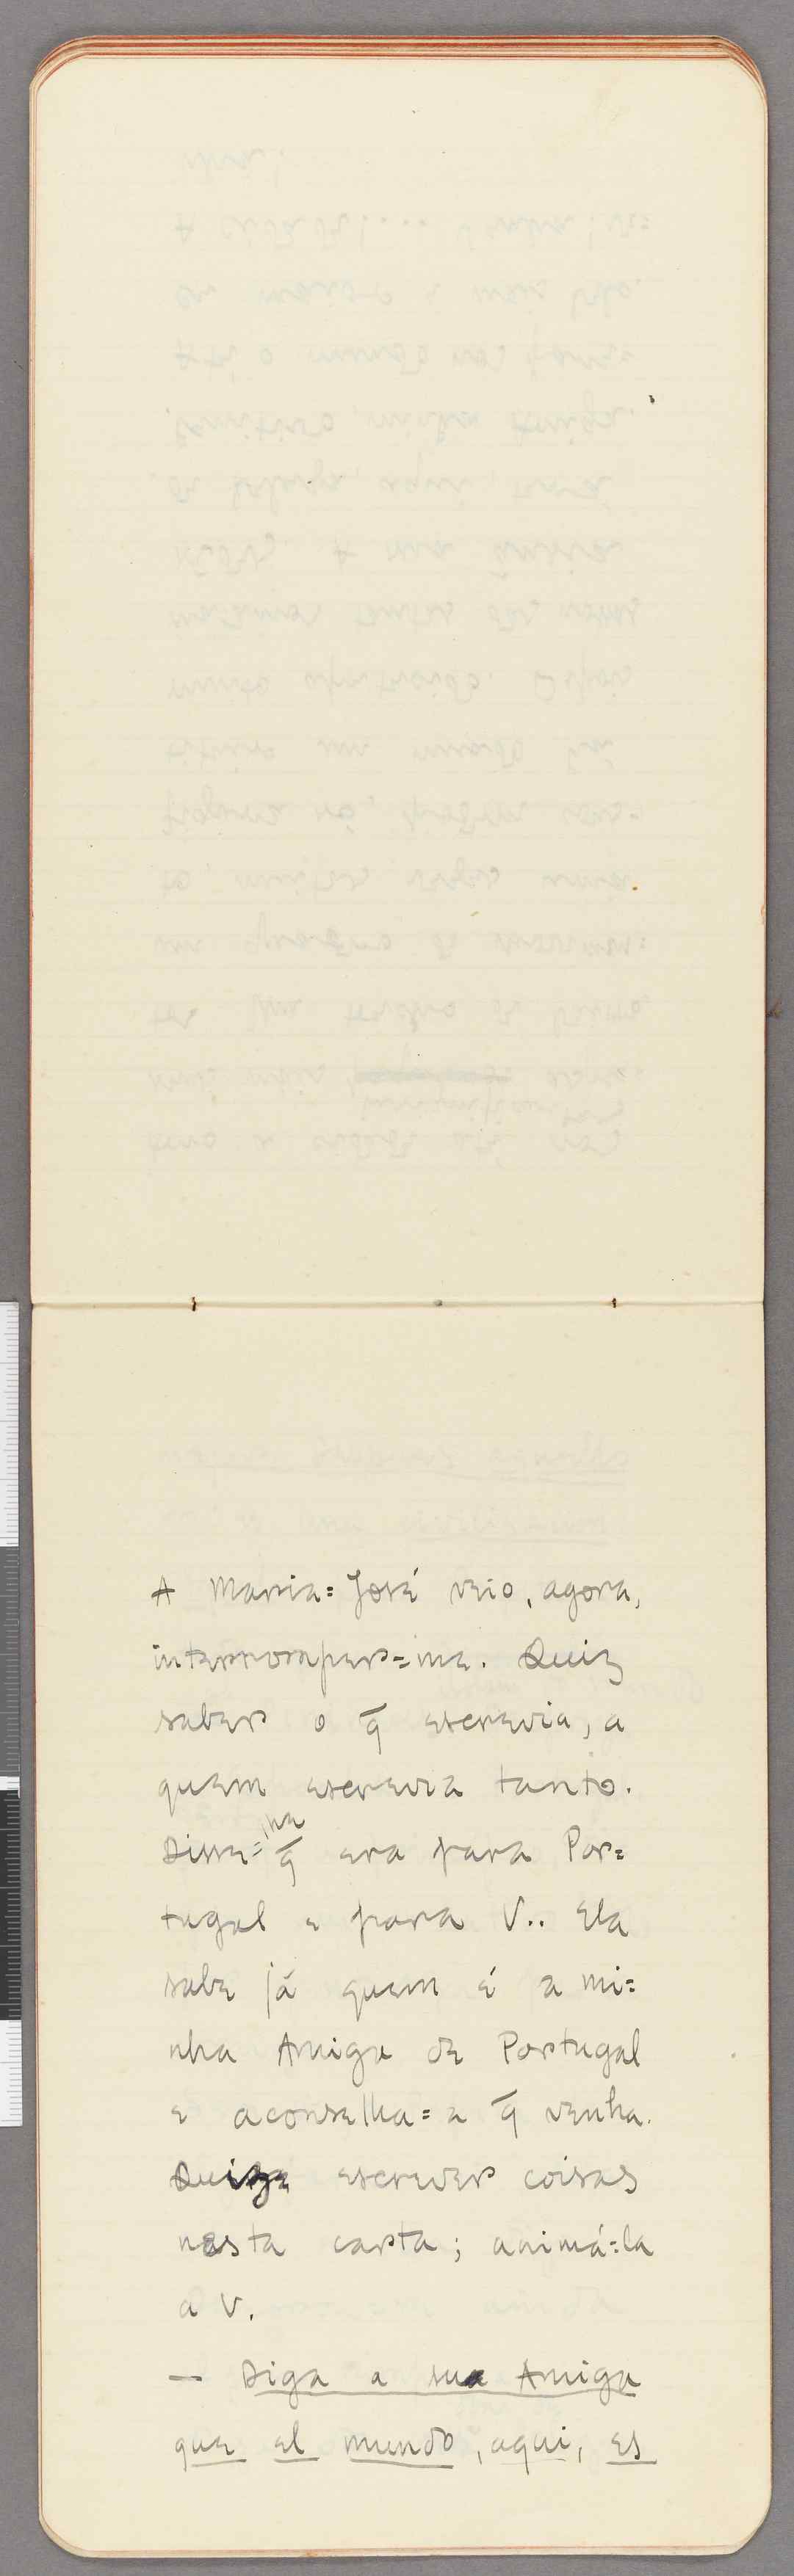 A Maria=José veio, agora,
interromper=me. Quiz
saber o q̄ escrevia, a
quem escrevia tanto.
Disse=lhe q̄ era para Por=
tugal e para V.. Ela
sabe já quem é a mi=
nha Amiga de Portugal
e aconselha=a q̄ venha.
Quize escrever coisas
nesta carta; animá=la
a V.
— Diga a sua Amiga
que el mundo, aqui, es